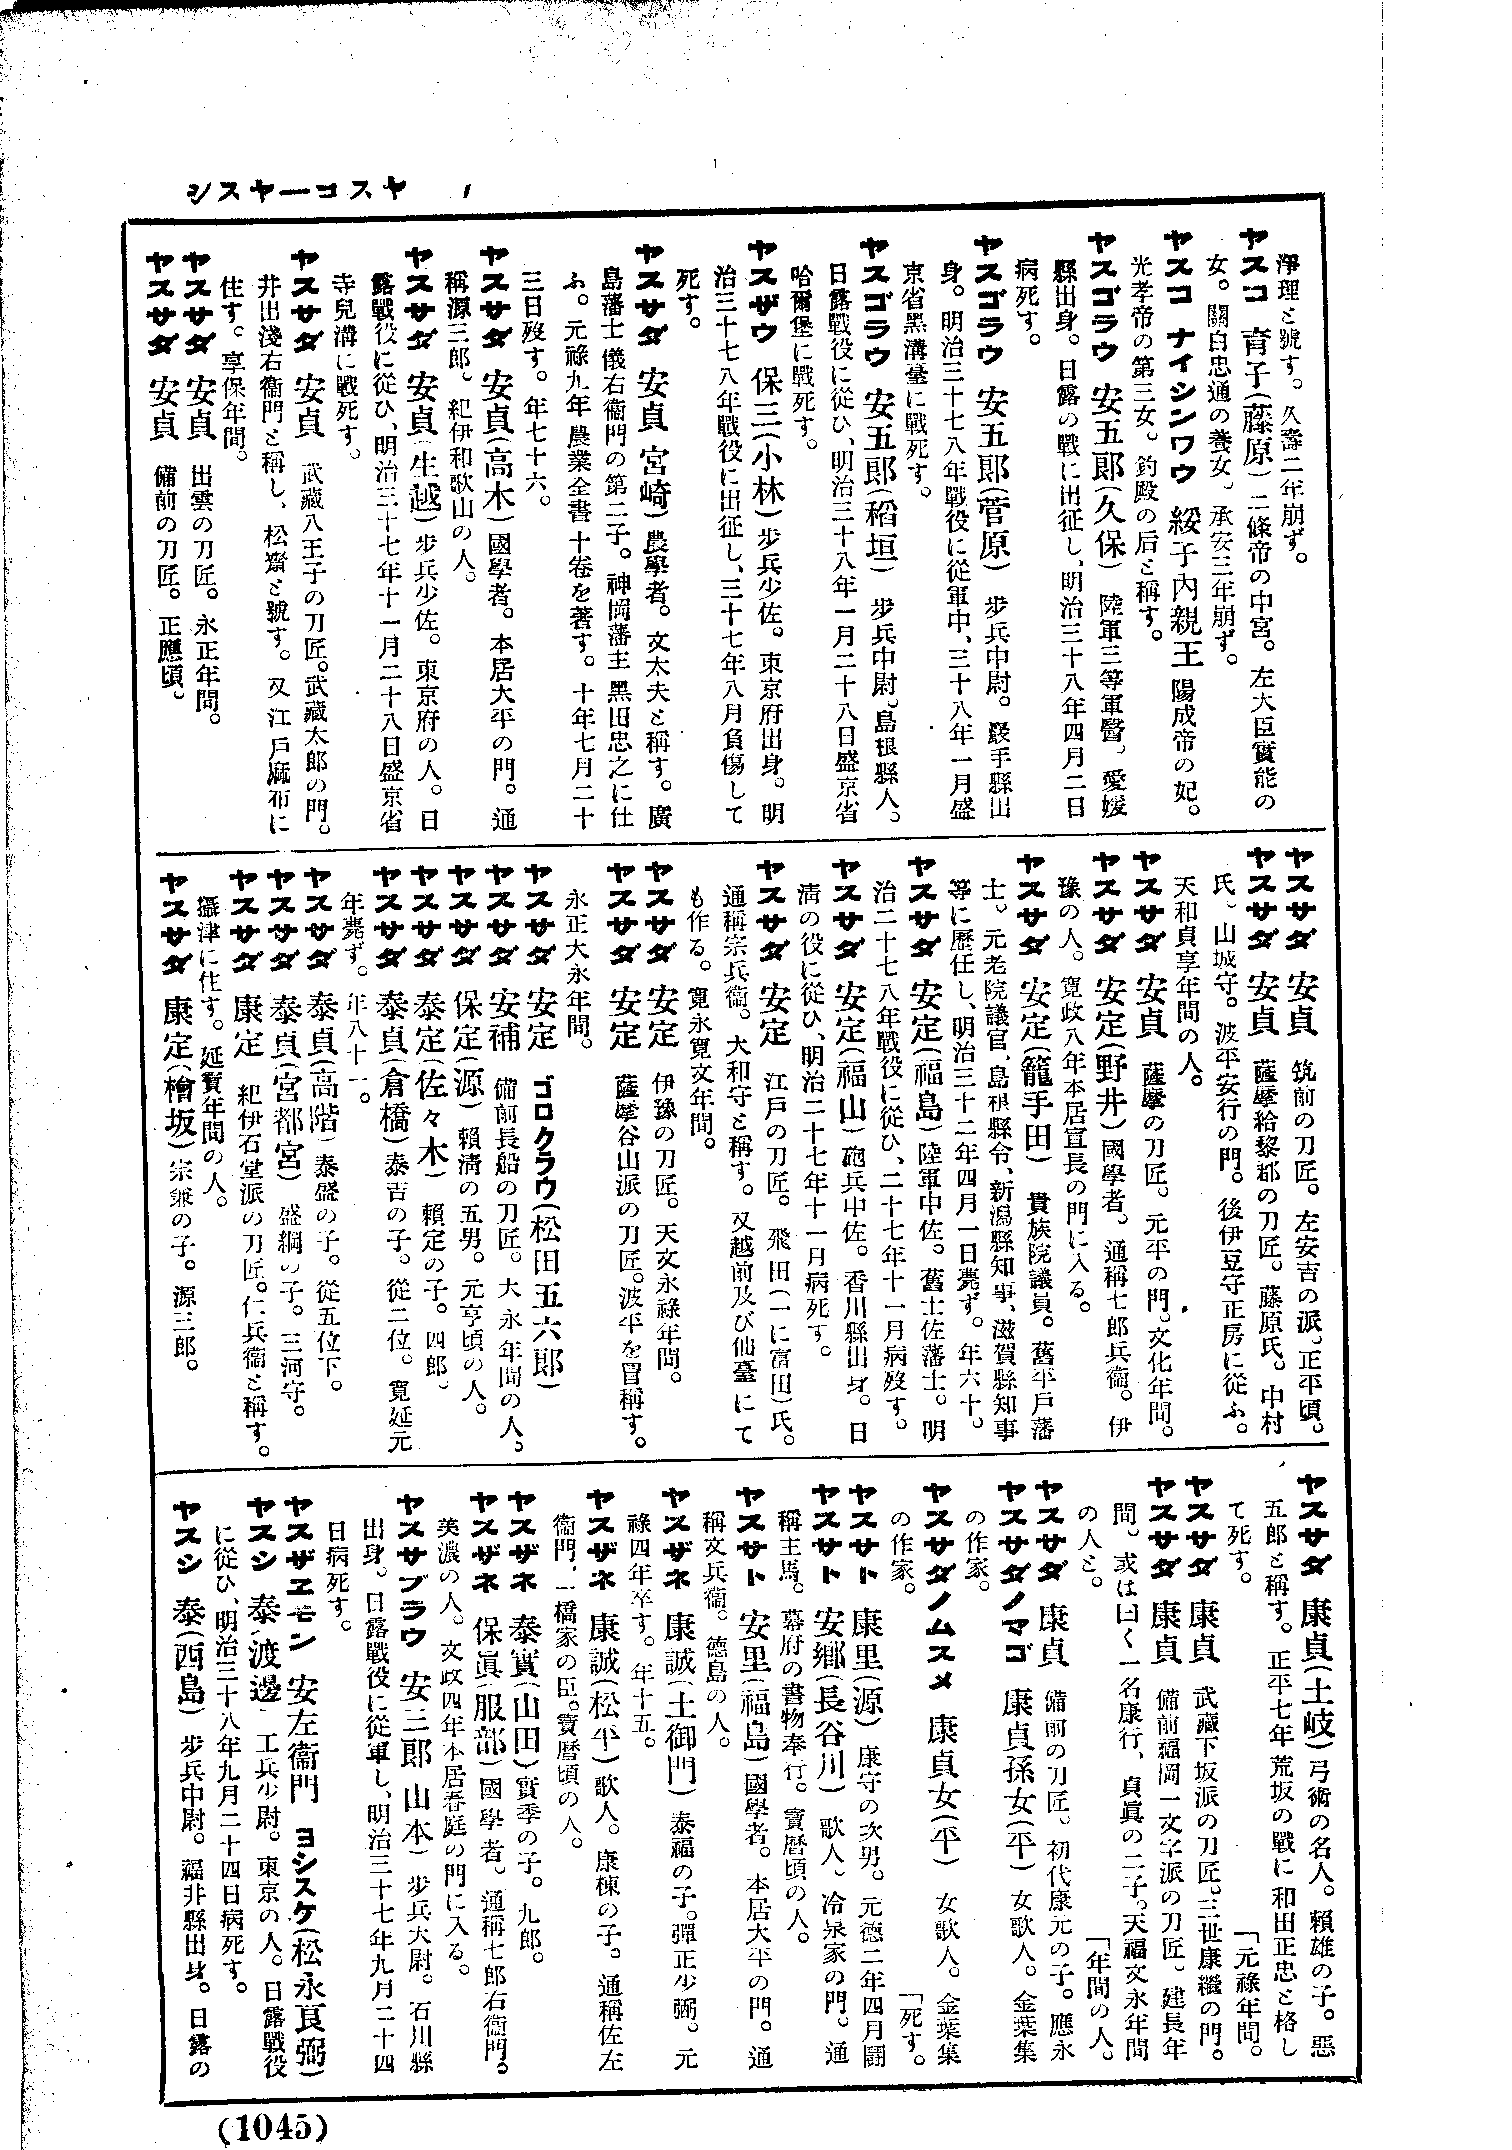 ヤスコ―ヤスシ
淨理と號す。久壽二年崩ず。
ヤスコ 育子(藤原) 二條帝の中宮。左大臣實能の
女。關白忠通の養女。承安三年崩ず。
ヤスコ ナイシンワウ 綏子内親王 陽成帝の妃。
光孝帝の第三女。釣殿の后と稱す。
ヤスゴラウ 安五郎(久保) 陸軍三等軍醫。愛媛
縣出身。日露の戰に出征し、明治三十八年四月二日
病死す。
ヤスゴラウ 安五郎(菅原) 步兵中尉。巖手縣出
身。明治三十七八年戰役に從軍中、三十八年一月盛
京省黑溝臺に戰死す。
ヤスゴラウ 安五郎(稻垣) 步兵中尉。島根縣人。
日露戰役に從ひ、明治三十八年一月二十八日盛京省
哈爾堡に戰死す。
ヤスザウ 保三(小林) 步兵少佐。東京府出身。明
治三十七八年戰役に出征し、三十七年八月負傷して
死す。
ヤスサダ 安貞 宮崎) 農學者。文太夫と稱す。廣
島藩士儀右衞門の第二子。神岡藩主黑田忠之に仕
ふ。元祿九年農業全書十卷を著す。十年七月二十
三日歿す。年七十六。
ヤスサダ 安貞(高木) 國學者。本居大平の門。通
稱源三郎。紀伊和歌山の人。
ヤスサダ 安貞(生越) 步兵少佐。東京府の人。日
露戰役に從ひ、明治三十七年十一月二十八日盛京省
寺兒溝に戰死す。
ヤスサダ 安貞 武藏八王子の刀匠。武藏太郎の門。
井出淺右衞門と稱し、松齋と號す。又江戸麻布に
住す。享保年間。
ヤスサダ 安貞 出雲の刀匠。永正年間。
ヤスサダ 安貞 備前の刀匠。正應頃。
ヤスサダ 安貞 筑前の刀匠。左安吉の派。正平頃。
ヤスサダ 安貞 薩摩給黎郡の刀匠。藤原氏。中村
氏、山城守。波平安行の門。後伊豆守正房に從ふ。
天和貞享年間の人。
ヤスサダ 安貞 薩摩の刀匠。元平の門。文化年間。
ヤスサダ 安定(野井) 國學者。通稱七郎兵衞。伊
豫の人。寬政八年本居宣長の門に入る。
ヤスサダ 安定(籠手田) 貴族院議員。舊平戸藩
士。元老院議官、島根縣令、新潟縣知事、滋賀縣知事
等に歷任し、明治三十二年四月一日薨ず。年六十。
ヤスサダ 安定(福島) 陸軍中佐。舊士佐藩士。明
治二十七八年戰役に從ひ、二十七年十一月病歿す。
ヤスサダ 安定(福山) 砲兵中佐。香川縣出身。日
淸の役に從ひ、明治二十七年十一月病死す。
ヤスサダ 安定 江戸の刀匠。飛田(一に富田)氏。
通稱宗兵衞。大和守と稱す。又越前及び仙臺にて
も作る。寬永寬文年間。
ヤスサダ 安定 伊豫の刀匠。天文永祿年間。
ヤスサダ 安定 薩摩谷山派の刀匠。波平を冒稱す。
永正大永年間。
ヤスサダ 安定 ゴロクラウ(松田五六郎)
ヤスサダ 安補 備前長船の刀匠。大永年間の人。
ヤスサダ 保定(源) 賴淸の五男。元亨頃の人。
ヤスサダ 泰定(佐々木) 賴定の子。四郎。
ヤスサダ 泰貞(倉橋) 泰吉の子。從二位。寬延元
年薨ず。年八十一。
ヤスサダ 泰貞(高階) 泰盛の子。從五位下。
ヤスサダ 泰貞(宮都宮) 盛綱の子。三河守。
ヤスサダ 康定 紀伊石堂派の刀匠。仁兵衞と稱す。
攝津に住す。延寶年間の人。
ヤスサダ 康定(檜坂) 宗兼の子。源三郎。
ヤスサダ 康貞(土岐) 弓術の名人。賴雄の子。惡
五郎と稱す。正平七年荒坂の戰に和田正忠と格し
て死す。 「元祿年間。
ヤスサダ 康貞 武藏下坂派の刀匠。三世康繼の門。
ヤスサダ 康貞 備前福岡一文字派の刀匠。建長年
間。或は曰く一名康行、貞眞の二子。天福文永年間
の人と。 「年間の人。
ヤスサダ 康貞 備前の刀匠。初代康元の子。應永
ヤスサダノマゴ 康貞孫女(平) 女歌人。金葉集
の作家。
ヤスサダノムスメ 康貞女(平) 女歌人。金葉集
の作家。 「死す。
ヤスサト 康里(源) 康守の次男。元德二年四月鬪
ヤスサト 安鄕(長谷川) 歌人。冷泉家の門。通
稱主馬。幕府の書物奉行。寶曆頃の人。
ヤスサト 安里(福島) 國學者。本居大平の門。通
稱文兵衞。德島の人。
ヤスザネ 康誠(土御門) 泰福の子。彈正少弼。元
祿四年卒す。年十五。
ヤスザネ 康誠(松平) 歌人。康棟の子。通稱佐左
衞門、一橋家の臣。寶曆頃の人。
ヤスザネ 泰實(山田) 實季の子。九郎。
ヤスザネ 保眞(服部) 國學者。通稱七郎右衞門。
美濃の人。文政四年本居春庭の門に入る。
ヤスサブラウ 安三郎 山本) 步兵大尉。石川縣
出身。日露戰役に從軍し、明治三十七年九月二十四
日病死す。
ヤスザヱモン 安左衞門 ヨシスケ(松永良弼)
ヤスシ 泰(渡邊) 工兵少尉。東京の人。日露戰役
に從ひ、明治三十八年九月二十四日病死す。
ヤスシ 泰(西島) 步兵中尉。福井縣出身。日露の
(1045)